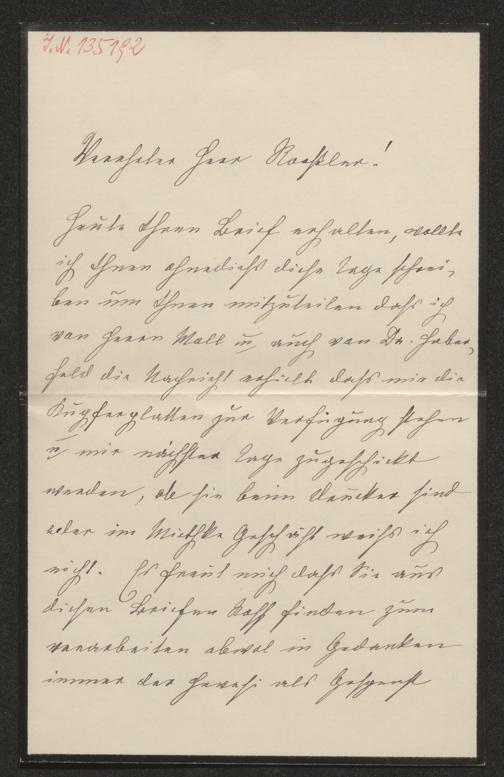 J.N. 135192
Verehrter Herr Roeßler!
Heute Ihren Brief erhalten, wollte
ich Ihnen ohnedieß diese Tage schrei-
ben um Ihnen mitzuteilen daß ich
von Herrn Moll u. auch von Dr. Haber-
feld die Nachricht erhielt daß mir die
Kupferplatten zur Verfügung stehen
u. mir nächster Tage zugeschickt
werden, ob sie beim Drucker sind
oder im Miethke Geschäft weiß ich
nicht. Es freut mich daß Sie aus
diesen Briefen Stoff finden zum
verarbeiten obwol in Gedanken
immer der Hevesi als Gespenst